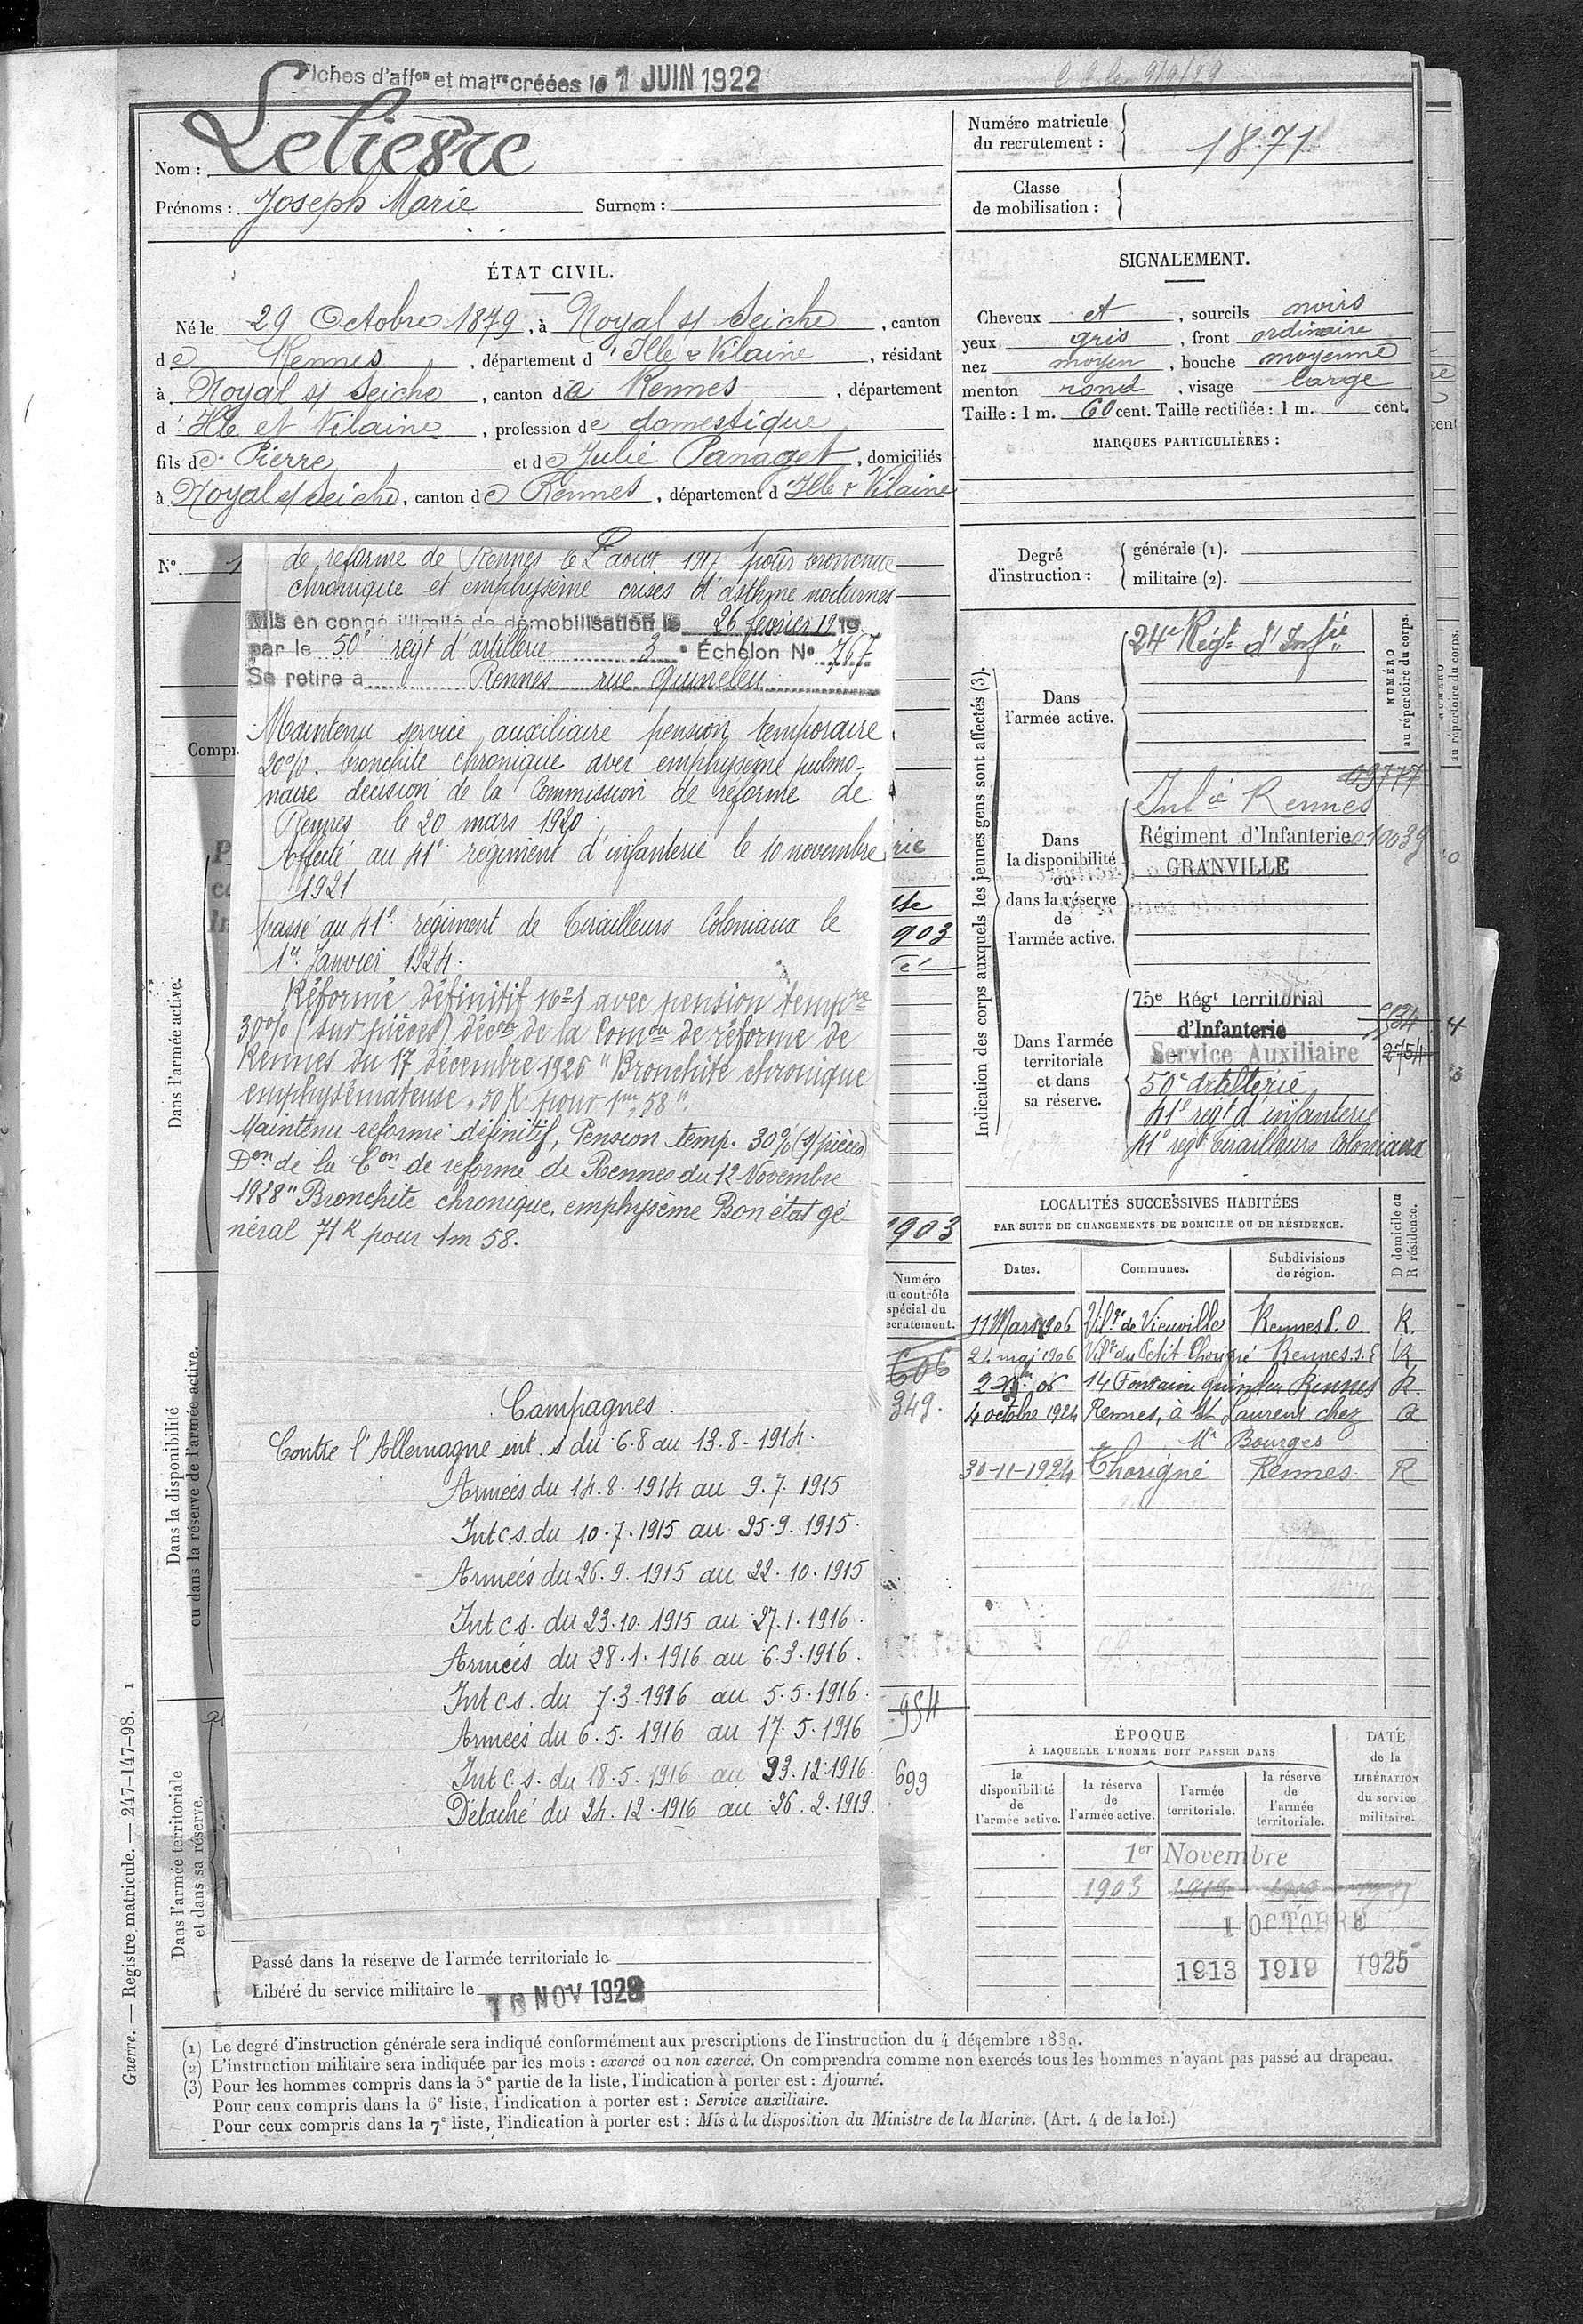 Fiches d'affon et matre créées le 1 JUIN 1922
Nom : Lelièvre
Prénoms : Joseph Marie Surnom :
Numéro matricule du recrutement : 1871
Classe de mobilisation :
ÉTAT CIVIL.
Né le 29 Octobre 1879, à Noyal s/ Seiche, canton
de Rennes, département d'Ille & Vilaine, résidant
à Noyal s/ Seiche, canton de Rennes, département
d'Ille et Vilaine, profession de domestique
fils de Pierre et de Julie Panaget, domiciliés
à Noyal s/ Seiche, canton de Rennes, département d'Ille & Vilaine
SIGNALEMENT.
Cheveux et, sourcils noirs
yeux gris, front ordinaire
nez moyen, bouche moyenne
menton rond, visage large
Taille : 1 m. 60 cent. Taille rectifiée : 1 m. cent.
MARQUES PARTICULIÈRES :
Degré d'instruction : générale (1).
militaire (2).
No.
de reforme de Rennes le 2 aout 1917 pour bronchite
chronique et emphysème crises d'asthme nocturnes
Mis en congé illimité de démobilisation le 26 fevrier 1919
par le 50e regt d'artillerie 3e Échelon No 767
Se retire à Rennes rue Quineleu
Maintenu service auxiliaire pension temporaire
20%. bronchite chronique avec emphysème pulmo-
naire décision de la Commission de réforme de
Rennes le 20 mars 1920
Affecté au 41e régiment d'infanterie le 10 novembre
1921
passé au 41e régiment de Tirailleurs Coloniaux le
1er Janvier 1924.
Réformé définitif No 1 avec pension tempre
30% (sur pièces) décon de la Comon de réforme de
Rennes du 17 décembre 1926 "Bronchite chronique
emphysémateuse. 50 K. pour 1m,58".
Maintenu reformé définitif, Pension temp. 30% (s/pièces)
Don de la Con de reforme de Rennes du 12 Novembre
1928 "Bronchite chronique, emphysème Bon état gé-
néral 71 K pour 1m 58.
Campagnes.
Contre l'Allemagne int. s du 6.8 au 13.8.1914.
Armées du 14.8.1914 au 9.7.1915
Int c.s. du 10.7.1915 au 25.9.1915.
Armées du 26.9.1915 au 22.10.1915
Int c s. du 23.10.1915 au 27.1.1916.
Armées du 28.1.1916 au 6.3.1916.
Int c s. du 7.3.1916 au 5.5.1916.
Armées du 6.5.1916 au 17.5.1916
Int c. s. du 18.5.1916 au 23.12.1916.
Détaché du 24.12.1916 au 26.2.1919.
Compr
rie
903
1903
Numéro
au contrôle
spécial du
recrutement.
606
349.
954
699
Dans l'armée active.
Dans la disponibilité
ou dans la réserve de l'armée active.
Dans l'armée territoriale
et dans sa réserve.
Passé dans la réserve de l'armée territoriale le
Libéré du service militaire le 10 NOV 1928
Indication des corps auxquels les jeunes gens sont affectés (3).
NUMÉRO
au répertoire du corps.
Dans l'armée active.
24e Régt d'Infie
Dans la disponibilité ou dans la réserve de l'armée active.
09777
Infie Rennes
Régiment d'Infanterie 010039
GRANVILLE
Dans l'armée territoriale et dans sa réserve.
75e Régt territorial
d'Infanterie
Service Auxiliaire 2754
50e artillerie
41e regt d'infanterie
41e regt Tirailleurs Coloniaux
LOCALITÉS SUCCESSIVES HABITÉES
PAR SUITE DE CHANGEMENTS DE DOMICILE OU DE RÉSIDENCE.
Dates. Communes. Subdivisions de région. D domicile ou R résidence.
11 Mars 1906 Vilge de Vieuville Rennes S.O. R.
21 mai 1906 Vilge du Petit Thorigné Rennes S.E R
06 14 Fontaine quineleu Rennes R.
4 octobre 1924 Rennes, à St Laurent chez
Mr Bourges
30-11-1924 Thorigné Rennes R
ÉPOQUE
À LAQUELLE L'HOMME DOIT PASSER DANS
la disponibilité de l'armée active.
la réserve de l'armée active.
l'armée territoriale.
la réserve de l'armée territoriale.
DATE de la LIBÉRATION du service militaire.
1er Novembre
1903
1 OCTOBRE
1913 1919 1925
(1) Le degré d'instruction générale sera indiqué conformément aux prescriptions de l'instruction du 4 décembre 1889.
(2) L'instruction militaire sera indiquée par les mots : exercé ou non exercé. On comprendra comme non exercés tous les hommes n'ayant pas passé au drapeau.
(3) Pour les hommes compris dans la 5e partie de la liste, l'indication à porter est : Ajourné.
Pour ceux compris dans la 6e liste, l'indication à porter est : Service auxiliaire.
Pour ceux compris dans la 7e liste, l'indication à porter est : Mis à la disposition du Ministre de la Marine. (Art. 4 de la loi.)
Guerre. — Registre matricule. — 247-147-98. 1